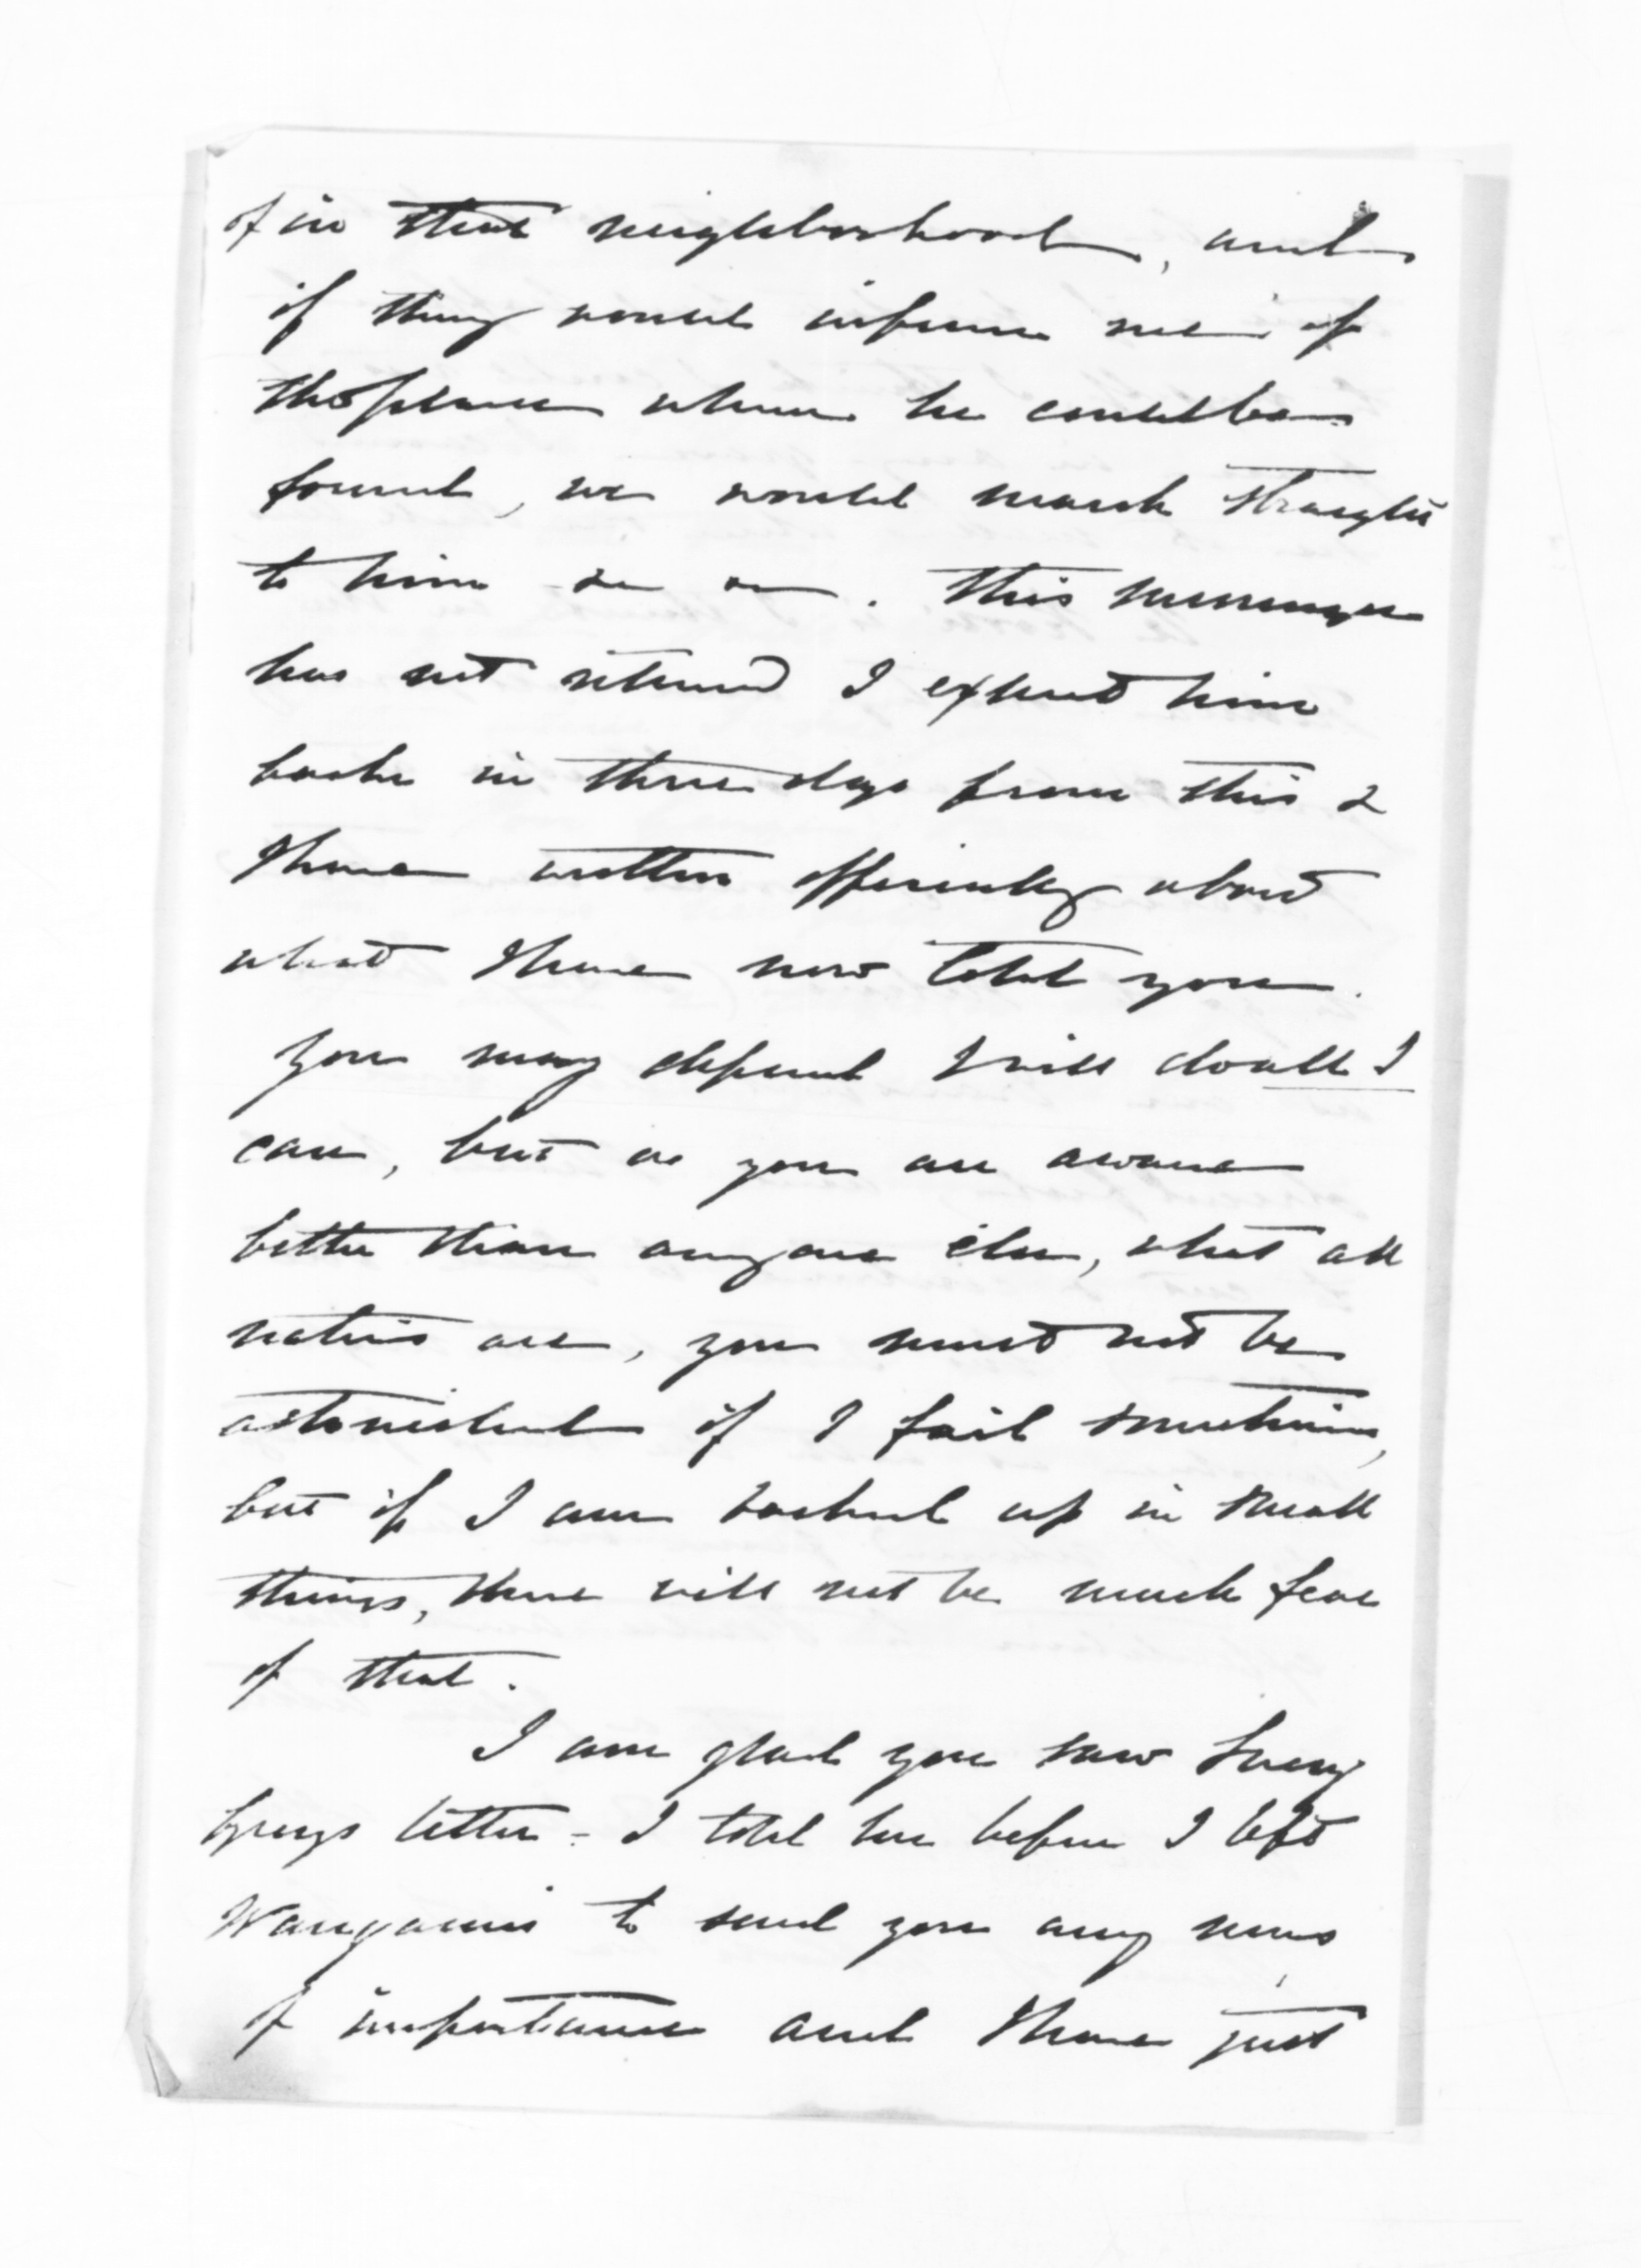 of in that neighborhood, and
if they would inform me of
the place where he could be
found, we would march straight
to him. This messenger
has not returned I expect him
back in three days from this &
I have written officially about
what I have now told you.
You may depend I will do all I
can, but as you are aware
better than anyone else, what all
natives are, you must not be
astonished if I fail sometimes,
but if I am backed up in small
things, there will not be much fear
of that.
I am glad you saw
letter - I told her before I left
Wanganui to send you any news
of importance and I have just